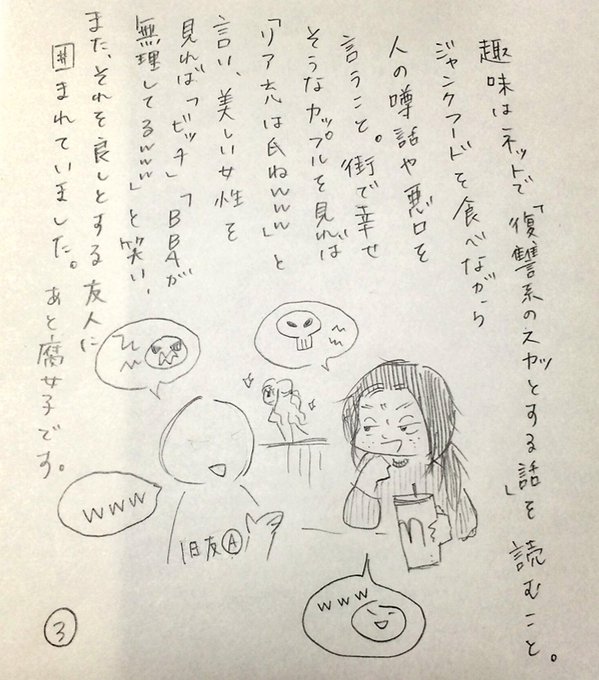 趣味はネットで「復讐系のスカッとする話」を読むこと。
ジャンクフードを食べながら
人の噂話や悪口を
言うこと。街で幸せ
そうなカップルを見れば
「リア充は氏ねwww」と
言い、美しい女性を
見れば「ビッチ」「BBAが
無理してるwww」と笑い、
また、それを良しとする友人に
囲まれていました。あと腐女子です。
www
旧友Ⓐ
m
www
③